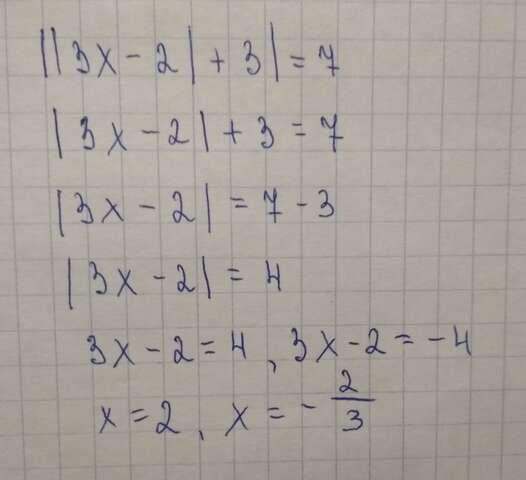 ||3x - 2| + 3| = 7
|3x - 2| + 3 = 7
|3x - 2| = 7 - 3
|3x - 2| = 4
3x - 2 = 4, 3x - 2 = -4
x = 2, x = -2/3